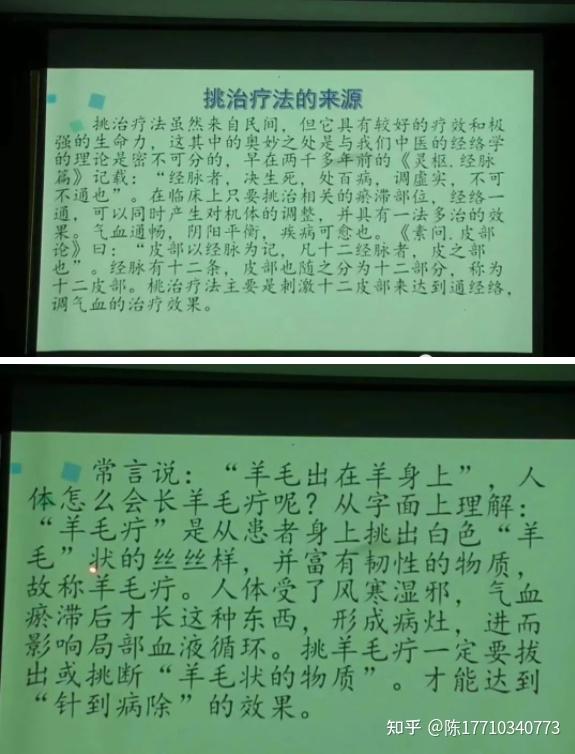 挑治疗法的来源
挑治疗法虽然来自民间，但它具有较好的疗效和极
强的生命力，这其中的奥妙之处是与我们中医的经络学
的理论是密不可分的，早在两千多年前的《灵枢.经脉
篇》记载：“经脉者，决生死，处百病，调虚实，不可
不通也”。在临床上只要挑治相关的瘀滞部位，经络一
通，可以同时产生对机体的调整，并具有一法多治的效
果。气血通畅，阴阳平衡，疾病可愈也。《素问.皮部
论》曰：“皮部以经脉为记，凡十二经脉者，皮之部
也”。经脉有十二条，皮部也随之分为十二部分，称为
十二皮部。桃治疗法主要是刺激十二皮部来达到通经络，
调气血的治疗效果。
常言说：“羊毛出在羊身上”，人
体怎么会长羊毛疔呢？从字面上理解：
“羊毛疔”是从患者身上挑出白色“羊
毛”状的丝丝样，并富有韧性的物质，
故称羊毛疔。人体受了风寒湿邪，气血
瘀滞后才长这种东西，形成病灶，进而
影响局部血液循环。挑羊毛疔一定要拔
出或挑断“羊毛状的物质”。才能达到
“针到病除”的效果。
知乎 @陈17710340773